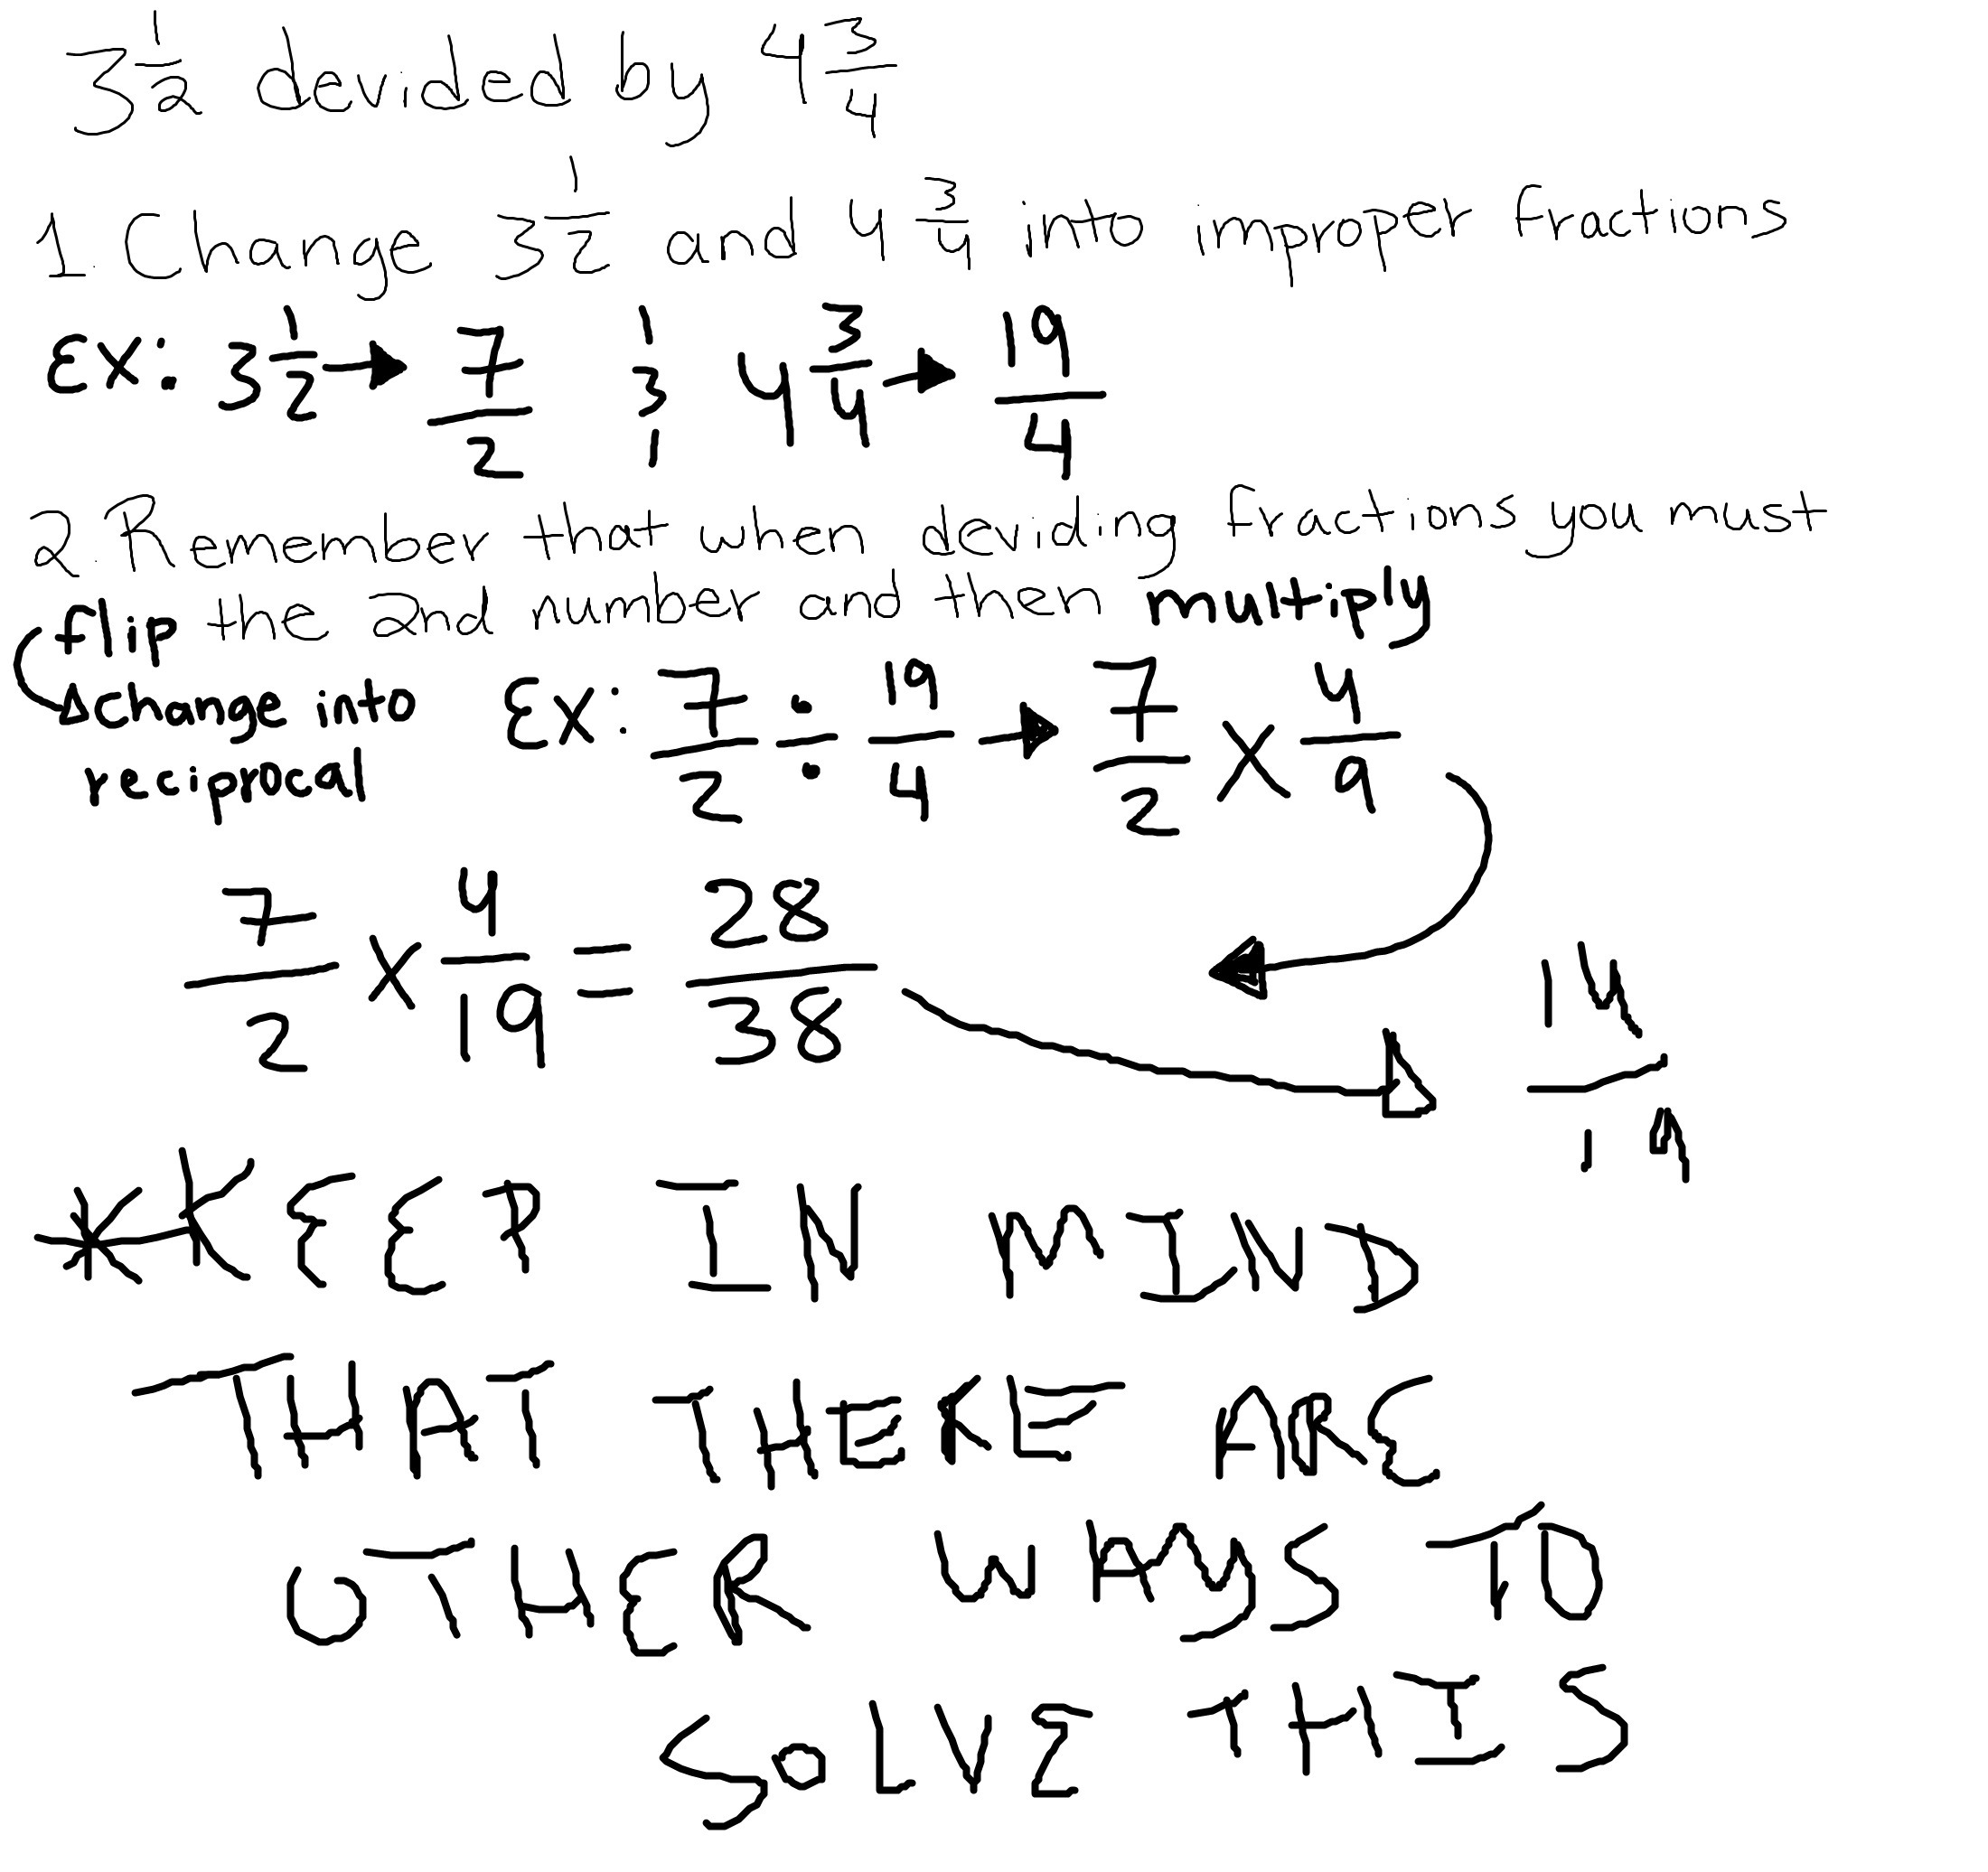 3 1/2 devided by 4 3/4
1. Change 3 1/2 and 4 3/4 into improper fractions
EX: 3 1/2 → 7/2 ; 4 3/4 → 19/4
2. Remember that when deviding fractions you must
flip the 2nd number and then multiply
change into EX: 7/2 ÷ 19/4 → 7/2 x 4/9
reciprocal
7/2 x 4/19 = 28/38 → 14/19
*KEEP IN MIND
THAT THERE ARE
OTHER WAYS TO
SOLVE THIS